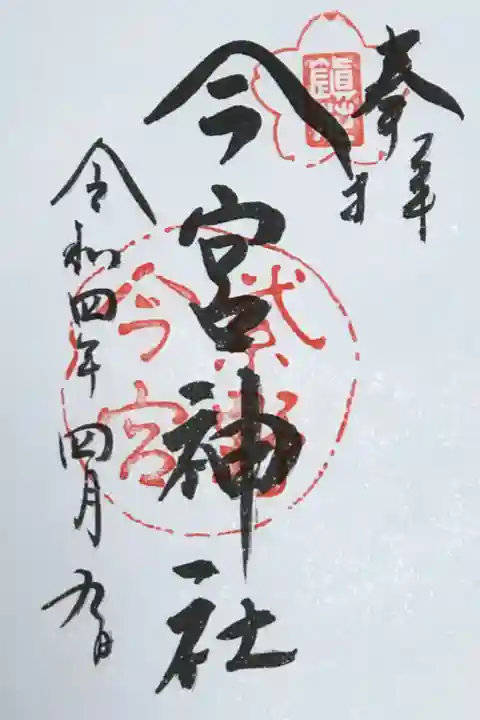 奉拝
今宮神社
令和四年 四月 九日
紫野
今宮